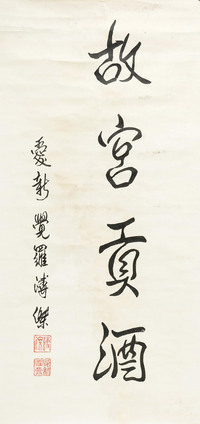 故宫貢酒
愛新覺羅溥傑